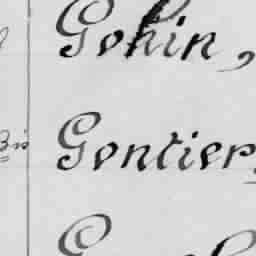 Gohin,
Bis Gontier,